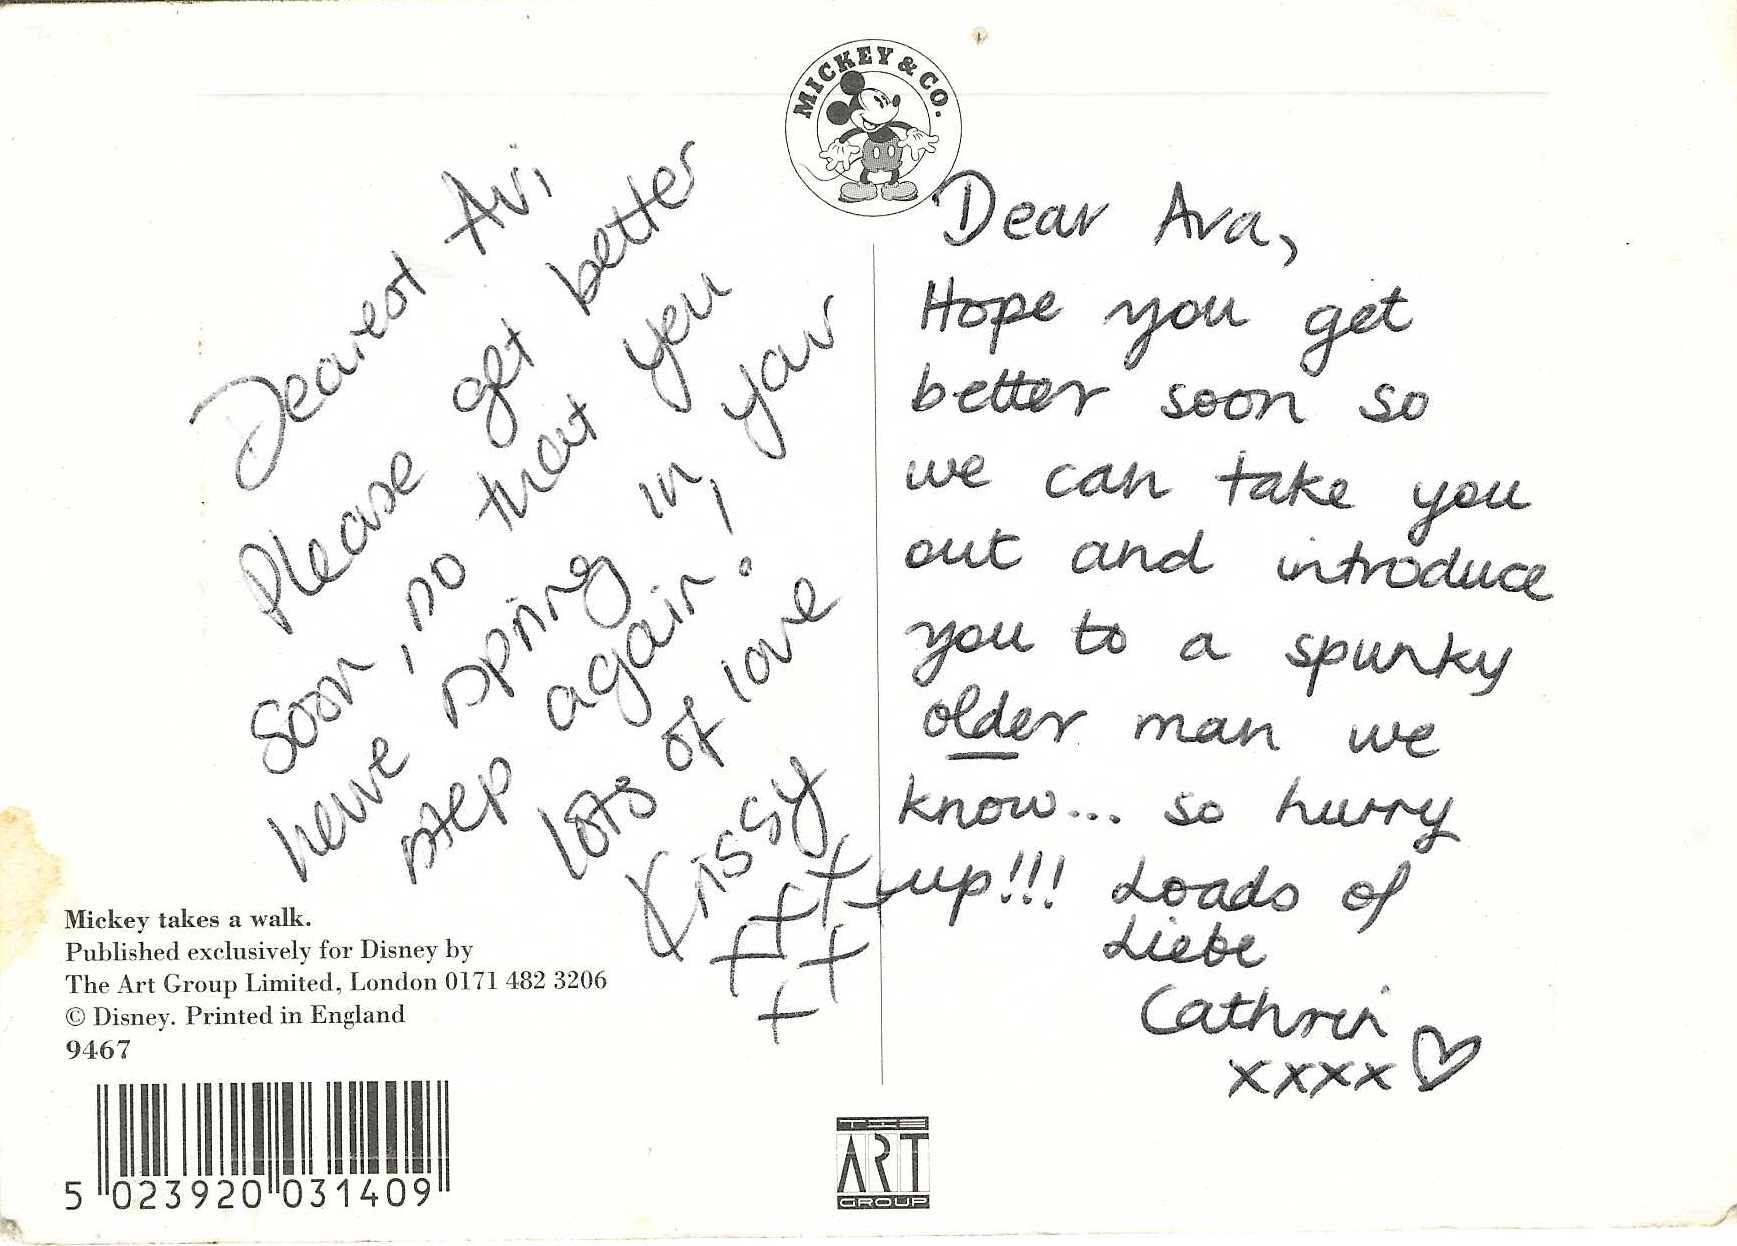 MICKEY & CO.
Dearest Avi,
Please get better
soon, so that you
have spring in your
step again!
lots of love
Krissy
+++
++
+
Dear Ava,
Hope you get
better soon so
we can take you
out and introduce
you to a spunky
older man we
know... so hurry
up!!! Loads of
Liebe
Cathrin
xxxx ♡
Mickey takes a walk.
Published exclusively for Disney by
The Art Group Limited, London 0171 482 3206
© Disney. Printed in England
9467
5 023920 031409
THE
ART
GROUP